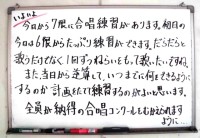 いよいよ
今日から7限に合唱練習があります。初日の
今日は6限からたっぷり練習ができます。だらだらと
歌うだけでなく1回ずつねらいをもって歌いたいですね。
また、当日から逆算して、いつまでに何をできるように
するのか計画を立てて練習するのがよいと思います。
全員が納得の合唱コンクールをむかえられます
ように…